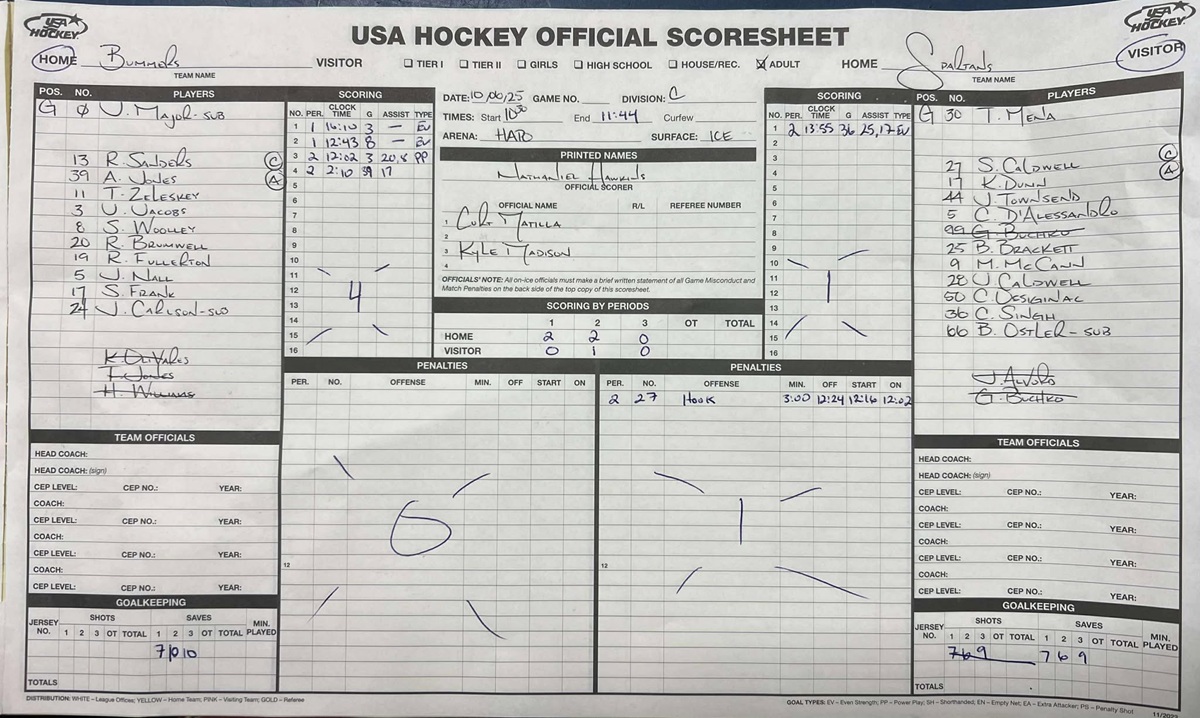 USA HOCKEY
USA HOCKEY OFFICIAL SCORESHEET
USA HOCKEY
HOME Bummers VISITOR
TEAM NAME
☐ TIER I ☐ TIER II ☐ GIRLS ☐ HIGH SCHOOL ☐ HOUSE/REC. ☒ ADULT
HOME Spartans VISITOR
TEAM NAME
POS. NO. PLAYERS
G Ø J. Major - SUB
13 R. Sanders C
39 A. Jones A
11 T. Zeleskey
3 J. Jacobs
8 S. Woolley
20 R. Brumwell
19 R. Fullerton
5 J. Nall
17 S. Frank
24 J. Carlson - SUB
K. Olivares
T. Jones
H. Williams
TEAM OFFICIALS
HEAD COACH:
HEAD COACH: (sign)
CEP LEVEL: CEP NO.: YEAR:
COACH:
CEP LEVEL: CEP NO.: YEAR:
COACH:
CEP LEVEL: CEP NO.: YEAR:
COACH:
CEP LEVEL: CEP NO.: YEAR:
GOALKEEPING
JERSEY NO. SHOTS SAVES MIN. PLAYED
1 2 3 OT TOTAL 1 2 3 OT TOTAL
7 10 10
TOTALS
SCORING
NO. PER. CLOCK TIME G ASSIST TYPE
1 1 16:10 3 — EV
2 1 12:43 8 — EV
3 2 12:02 3 20,8 PP
4 2 2:10 39 17
5
6
7
8
9
10
11
12
13
14
15
16
4
DATE: 10/06/25 GAME NO. DIVISION: C
TIMES: Start 10:30 End 11:44 Curfew
ARENA: HARD SURFACE: ICE
PRINTED NAMES
Nathaniel Hawkins
OFFICIAL SCORER
OFFICIAL NAME R/L REFEREE NUMBER
1 Curt Matilla
2
3 Kyle Madison
4
OFFICIALS' NOTE: All on-ice officials must make a brief written statement of all Game Misconduct and
Match Penalties on the back side of the top copy of this scoresheet.
SCORING BY PERIODS
1 2 3 OT TOTAL
HOME 2 2 0
VISITOR 0 1 0
SCORING
NO. PER. CLOCK TIME G ASSIST TYPE
1 2 13:55 36 25,17 EV
2
3
4
5
6
7
8
9
10
11
12
13
14
15
16
1
PENALTIES
PER. NO. OFFENSE MIN. OFF START ON
12
PENALTIES
PER. NO. OFFENSE MIN. OFF START ON
2 27 Hook 3:00 12:24 12:16 12:02
1
12
POS. NO. PLAYERS
G 30 T. Mena
27 S. Caldwell C
17 K. Dunn A
44 J. Townsend
5 C. D'Alessandro
99 G. Buchko
25 B. Brackett
9 M. McCann
28 J. Caldwell
50 C. Ossignac
36 C. Singh
66 B. Ostler - SUB
J. Alvoro
G. Buchko
TEAM OFFICIALS
HEAD COACH:
HEAD COACH: (sign)
CEP LEVEL: CEP NO.: YEAR:
COACH:
CEP LEVEL: CEP NO.: YEAR:
COACH:
CEP LEVEL: CEP NO.: YEAR:
COACH:
CEP LEVEL: CEP NO.: YEAR:
GOALKEEPING
JERSEY NO. SHOTS SAVES MIN. PLAYED
1 2 3 OT TOTAL 1 2 3 OT TOTAL
7 6 9 7 6 9
TOTALS
DISTRIBUTION: WHITE – League Offices; YELLOW – Home Team; PINK – Visiting Team; GOLD – Referee
GOAL TYPES: EV – Even Strength; PP – Power Play; SH – Shorthanded; EN – Empty Net; EA – Extra Attacker; PS – Penalty Shot